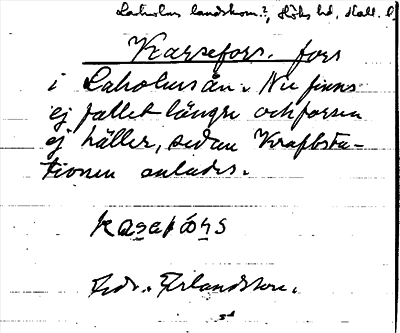 Laholms landskom.?, Höks hd, Hall. l.
Karsefors. fors
i Laholmsån. Nu finns
ej fallet längre och forsen
ej häller, sedan Kraftsta-
tionen anlades.
Fdr. Erlandsson.